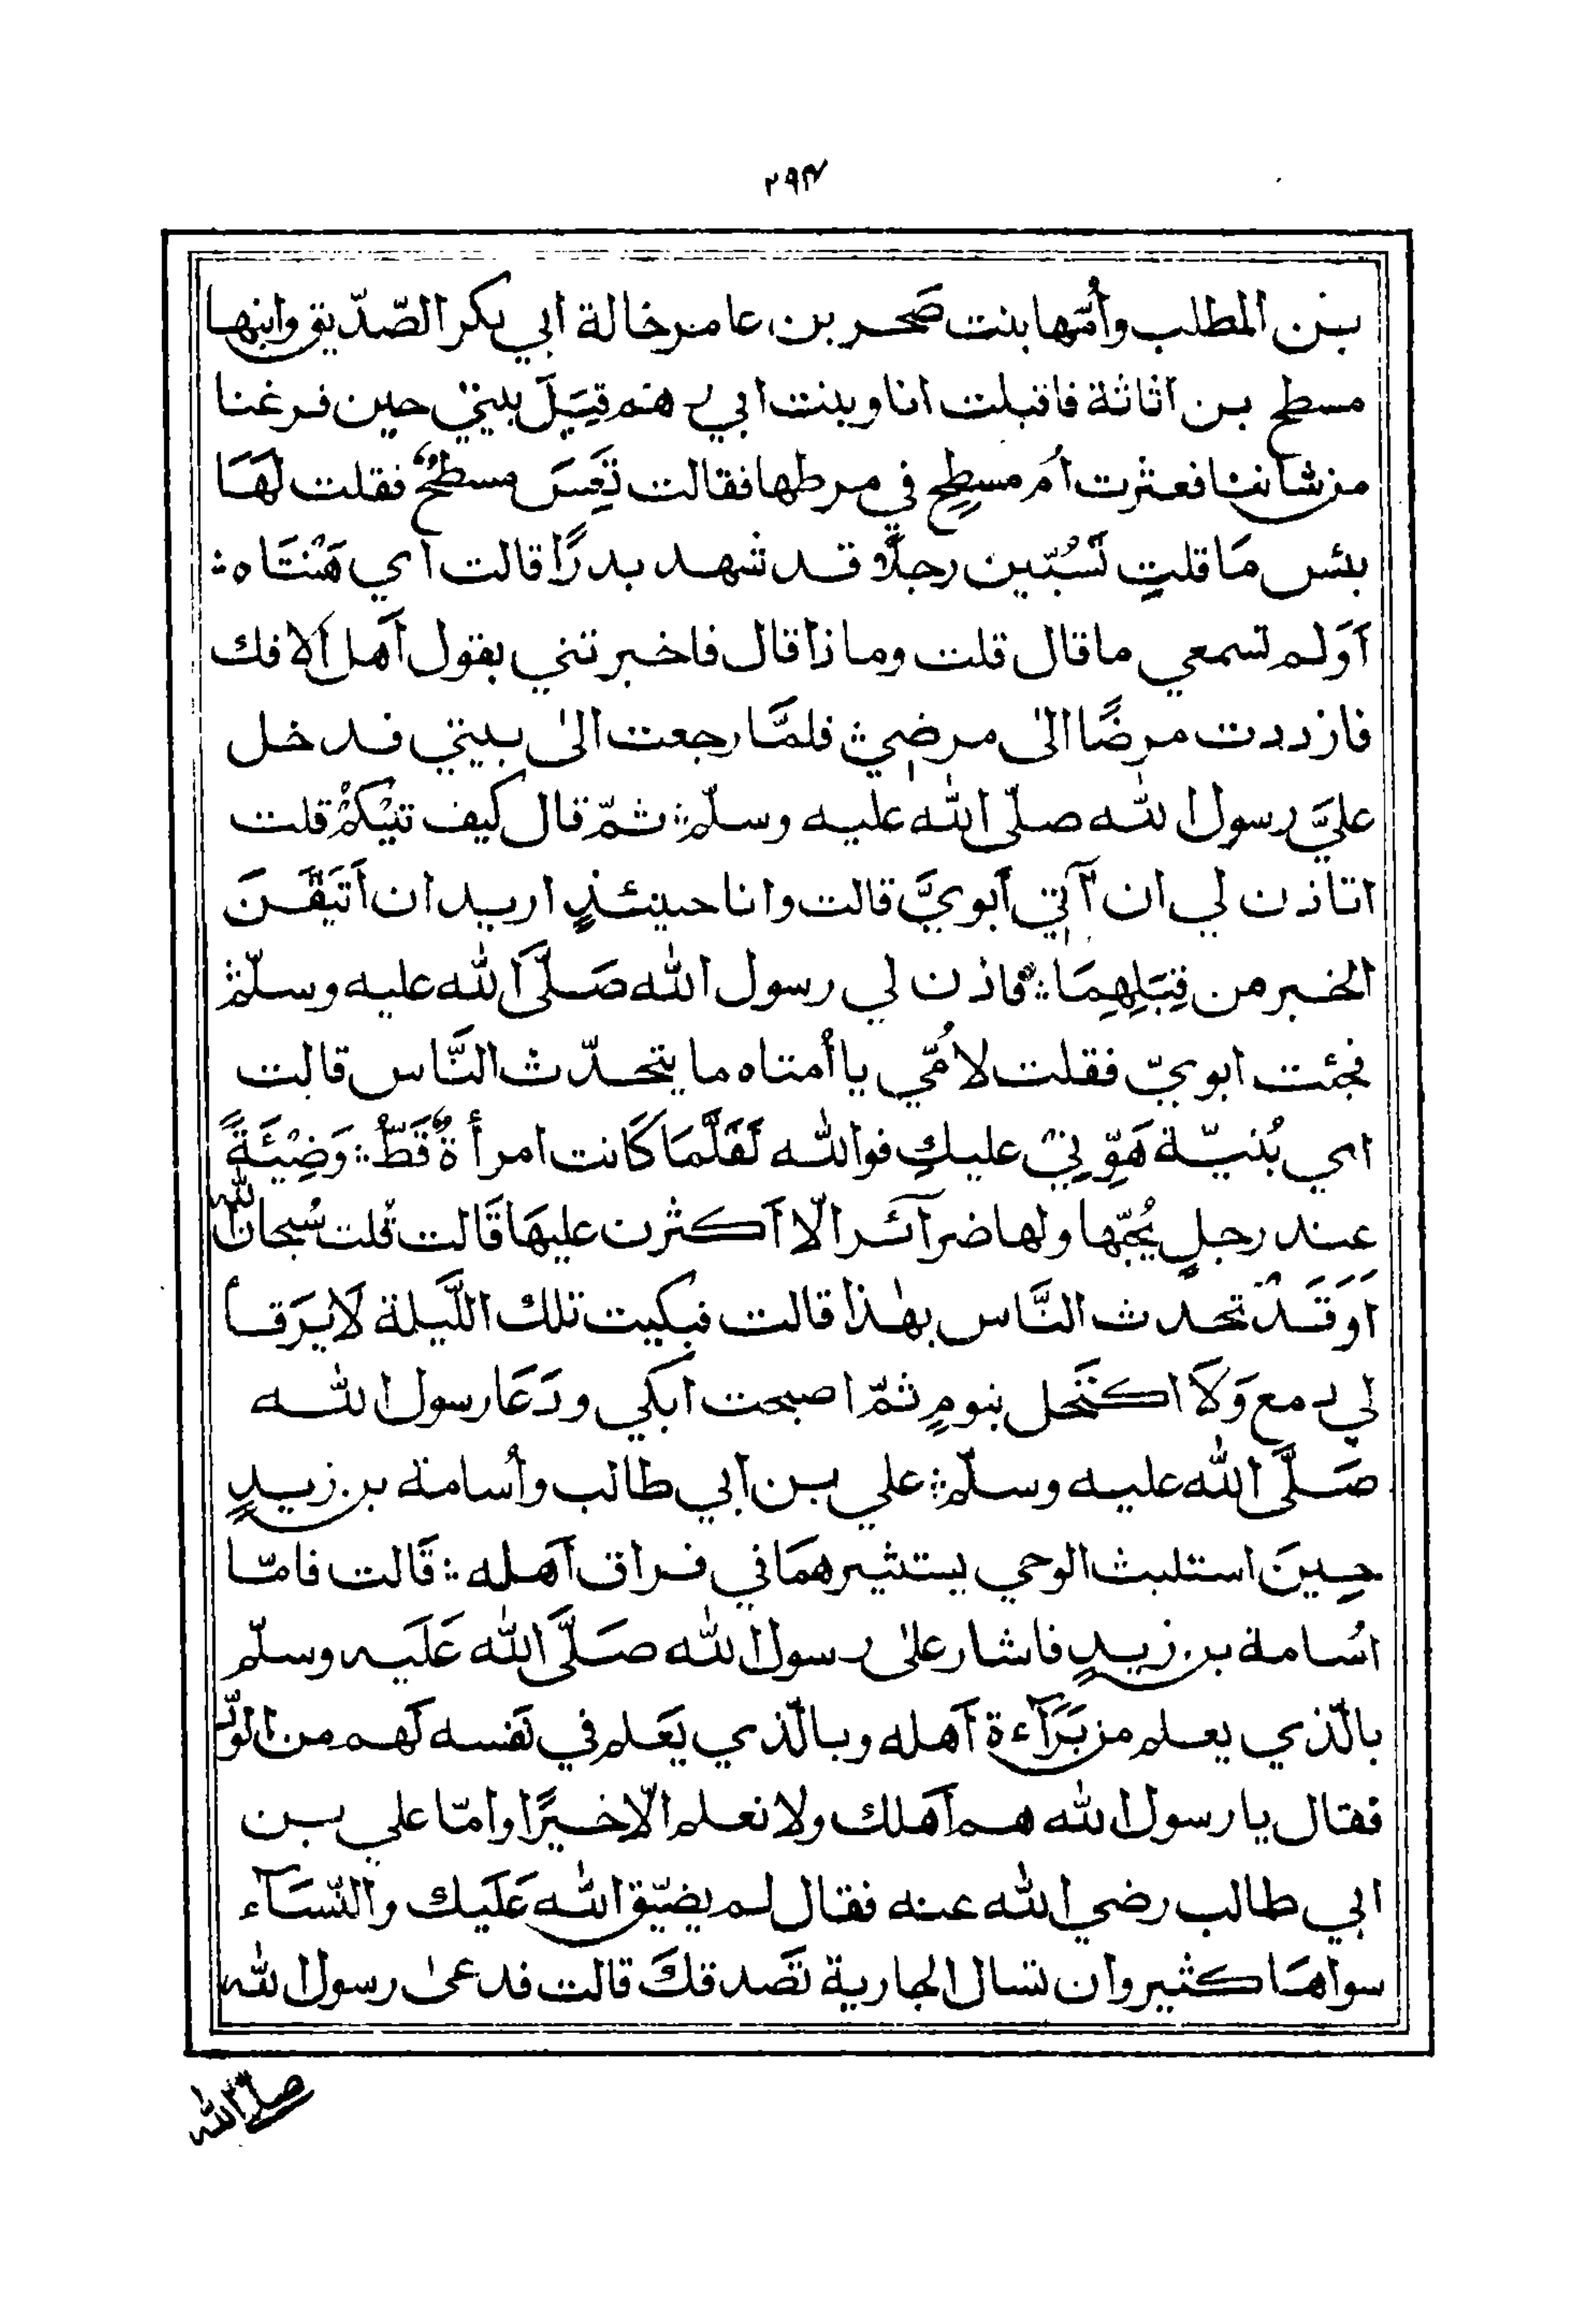 ٢٩٣
بن المطلب وأمّها بنت صَخر بن عامر خالة ابي بكر الصّدّيق وابنها
مسطح بن اثاثة فاقبلت انا وبنت ابي رهم قِبَلَ بيتي حين فرغنا
من شأننا فعثرت اُم مسطِح في مرطها فقالت تَعِسَ مسطحٌ فقلت لَهَا
بئس مَا قلتِ تَسُبّين رجلًا قد شهد بدرًا قالت اي هَنْتَاه
أَوَلم تسمعي ما قال قلت وماذا قال فاخبرتني بقول أهل الافك
فازددت مرضًا الىٰ مرضي فلمَّا رجعت الىٰ بيتي فدخل
عليَّ رسول الله صلّى الله عليه وسلّم ثمّ قال كيف تيْكمْ قلت
اتاذن لي ان آتي أبويَّ قالت وانا حينئذٍ اريد ان أَتَيَقَّنَ
الخبر من قِبَلِهِمَا فاذن لي رسول الله صَلَّى الله عليه وسلّم
فجئت ابويّ فقلت لامّي يا أمتاه ما يتحدّث النَّاس قالت
اي بُنيّة هَوِّنِي عليكِ فوالله لَقَلَّمَا كَانت امرأةٌ قَطّ وَضِيْئَةً
عند رجلٍ يُحبّها ولها ضرآئر الّا أكثرن عليهَا قَالت قلت سُبحان الله
اَوَقَدْ تحدث النَّاس بهٰذا قالت فبكيت تلك اللَّيلة لَا يَرَقأ
لي دمع وَلَا اكتحل بنومٍ ثمّ اصبحت أبكي ودَعَا رسول الله
صَلَّى الله عليه وسلّم علي بن أبي طالب وأسامة بن زيدٍ
حِينَ استلبث الوحي يستشيرهمَا في فراق أهله قَالت فامّا
اسُامة بن زيدٍ فاشار علىٰ رسول الله صَلَّى الله عَلَيه وسلّم
بالّذي يعلم من بَرَآءة أهله وبالّذي يَعَلم في نَفسه لَهم من الودّ
فقال يا رسول الله هم أهلك ولا نعلم الّا خيرًا وامّا علي بن
ابي طالب رضي الله عنه فقال لم يضيّق الله عَلَيك والنّسَآء
سواهَا كثير وان تسال الجارية تَصدقكَ قالت فدعىٰ رسول الله
صلّى الله